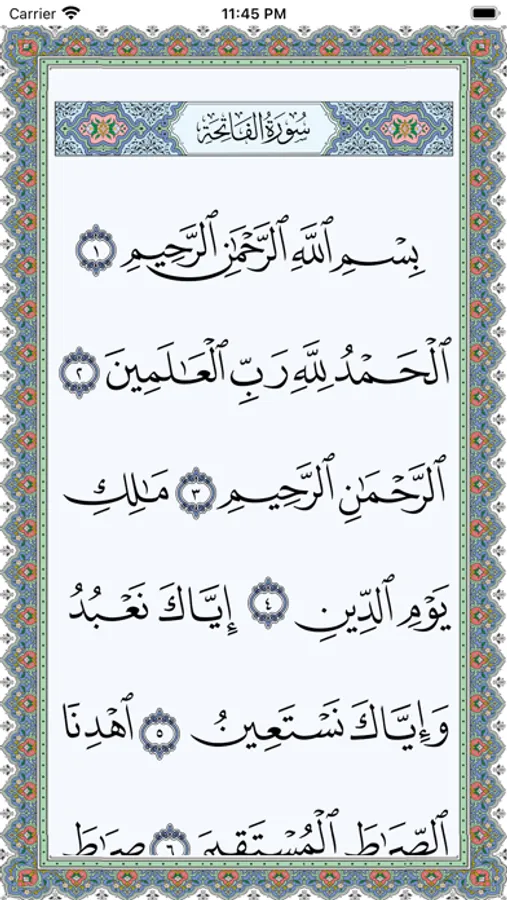 Carrier 11:45 PM
سُورَةُ الْفَاتِحَةِ
بِسْمِ ٱللَّهِ ٱلرَّحْمَٰنِ ٱلرَّحِيمِ ١
ٱلْحَمْدُ لِلَّهِ رَبِّ ٱلْعَٰلَمِينَ ٢
ٱلرَّحْمَٰنِ ٱلرَّحِيمِ ٣ مَٰلِكِ
يَوْمِ ٱلدِّينِ ٤ إِيَّاكَ نَعْبُدُ
وَإِيَّاكَ نَسْتَعِينُ ٥ ٱهْدِنَا
ٱلصِّرَٰطَ ٱلْمُسْتَقِيمَ ٦ صِرَٰطَ